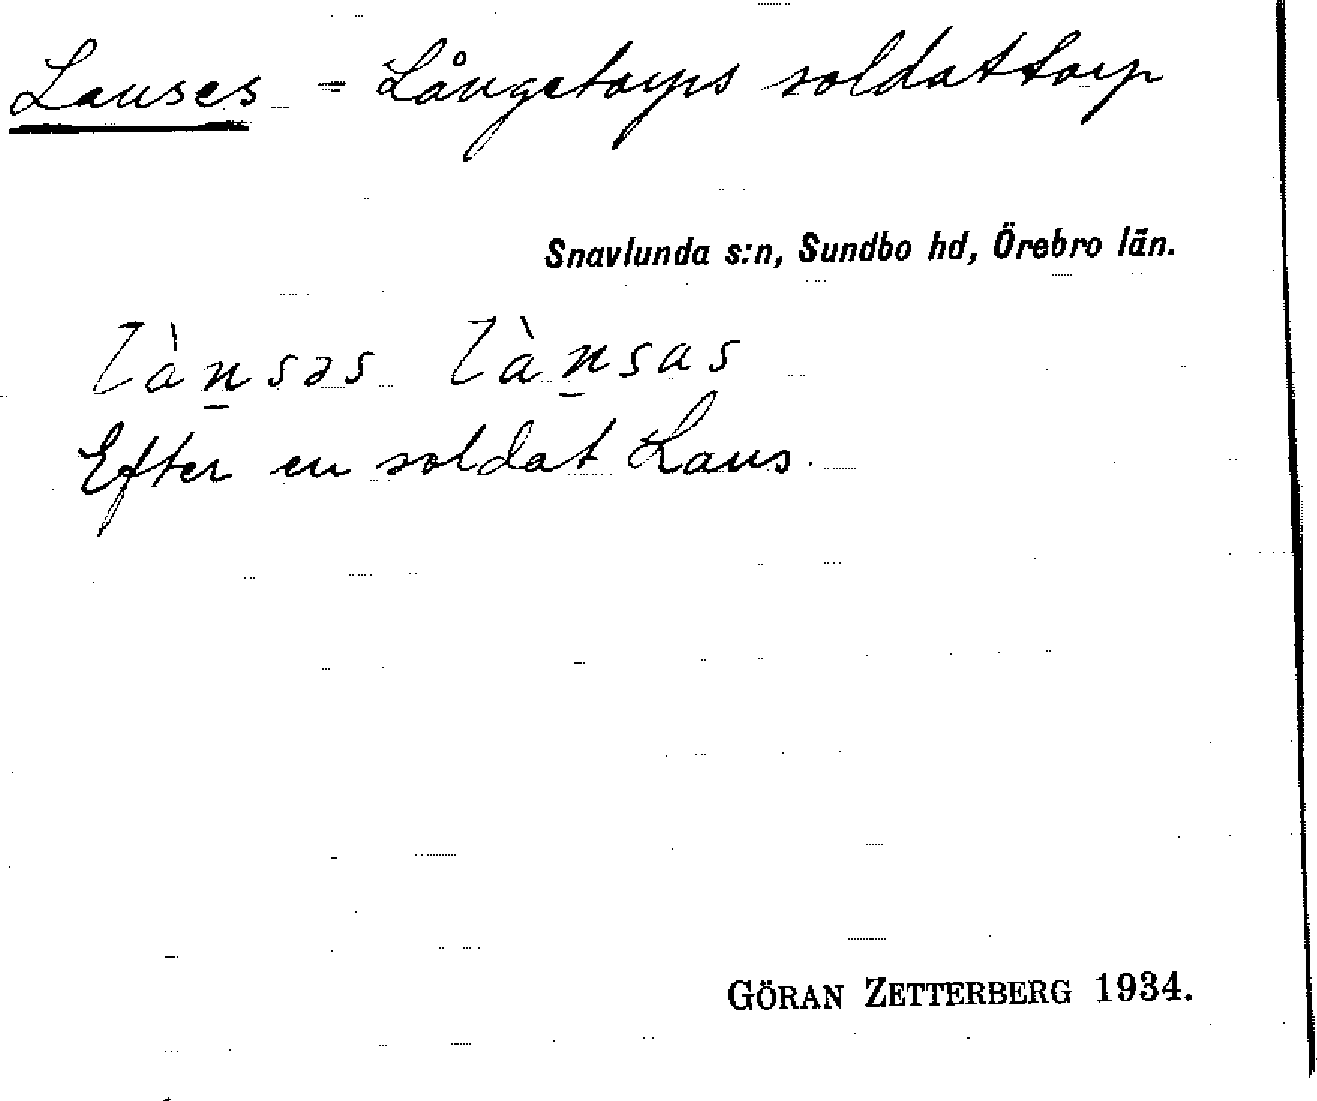 Lanses = Långetorps soldattorp
Snavlunda s:n, Sundbo hd, Örebro län.
lànsəs lànsas
Efter en soldat Lans.
GÖRAN ZETTERBERG 1934.